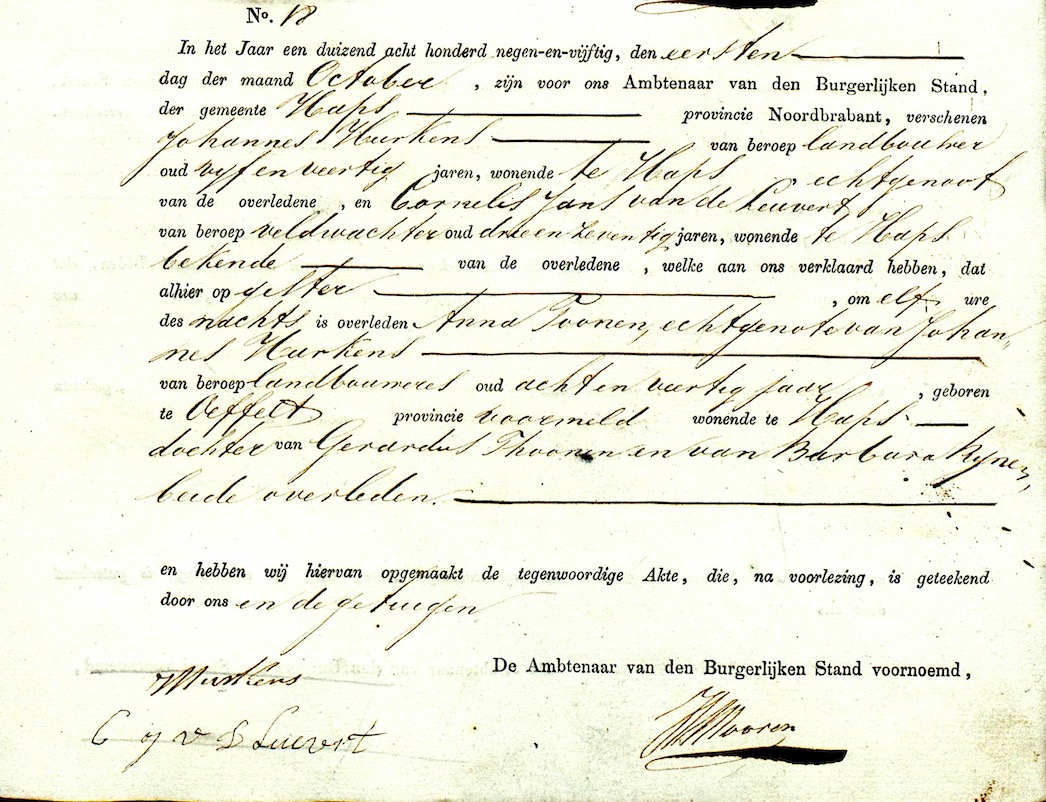 No. 18
In het Jaar een duizend acht honderd negen-en-vijftig, den eersten
dag der maand October , zijn voor ons Ambtenaar van den Burgerlijken Stand,
der gemeente Haps provincie Noordbrabant, verschenen
Johannes Hurkens van beroep landbouwer
oud vyf en veertig jaren, wonende te Haps echtgenoot
van de overledene , en Cornelis Jans van de Leuvert
van beroep veldwachter oud drie en zeventig jaren, wonende te Haps
bekende van de overledene , welke aan ons verklaard hebben, dat
alhier op gister , om elf ure
des nachts is overleden Anna Toonen, echtgenote van Johan„
nes Hurkens
van beroep landbouweres oud acht en veertig jaar , geboren
te Oeffelt provincie voormeld wonende te Haps
dochter van Gerardus Thoonen en van Barbara Rynen,
beide overleden.
en hebben wij hiervan opgemaakt de tegenwoordige Akte, die, na voorlezing, is geteekend
door ons en de getuigen
De Ambtenaar van den Burgerlijken Stand voornoemd,
JHurkens
C J v D Luevert